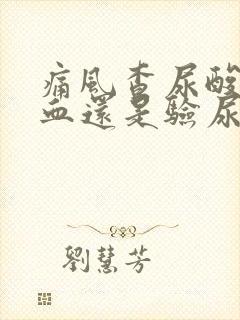 痛風查尿酸
血還是驗尿
劉慧芳